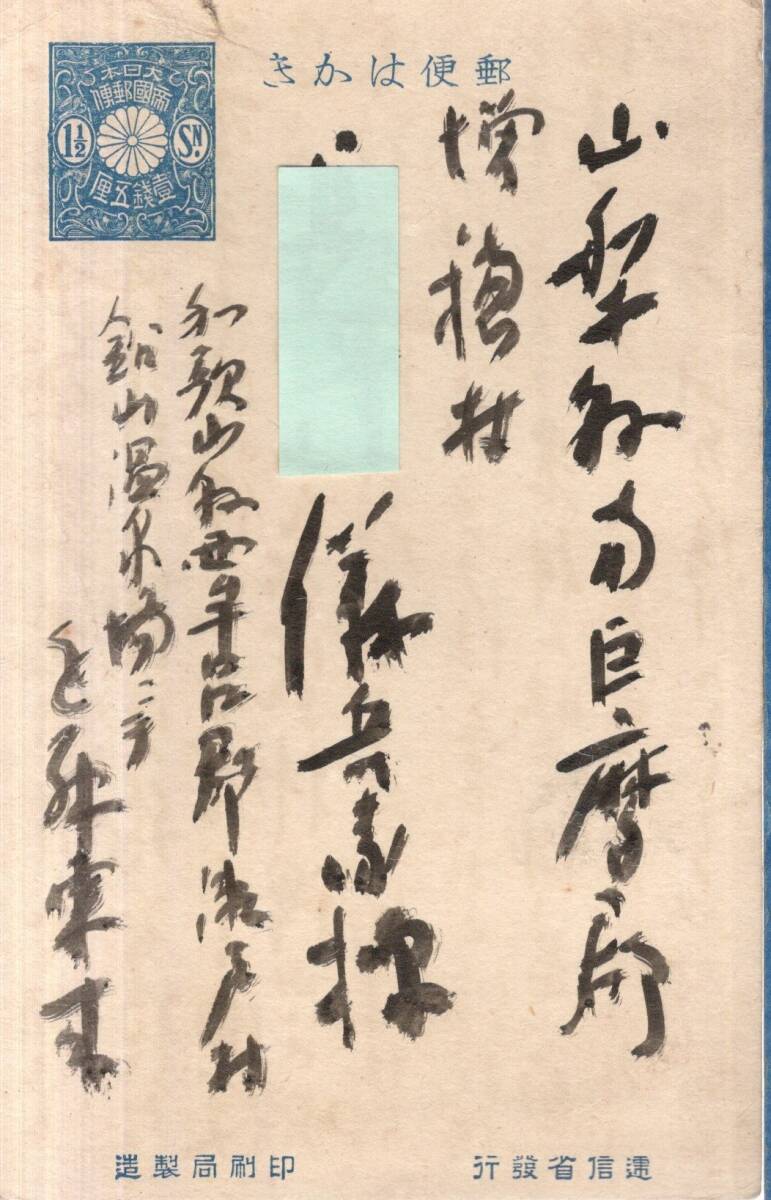 郵便はかき
大日本
帝國郵便
1½ SN.
壹錢五厘
山梨縣南巨摩郡
増穂村
儀兵衛様
和歌山縣西牟婁郡瀬戸
鉛山温泉場ニテ
遞信省發行
印刷局製造